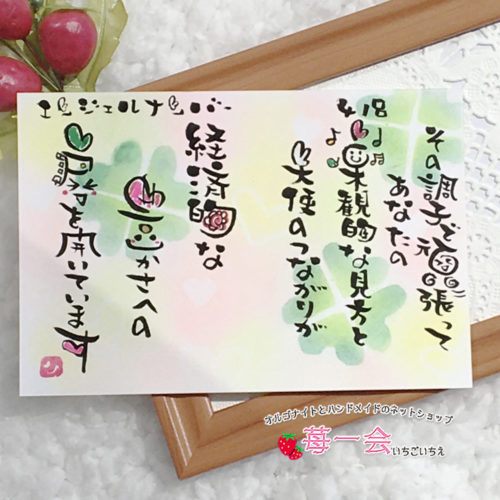 エンジェルナンバー
418
その調子で頑張って
あなたの
楽観的な見方と
天使のつながりが
経済的な
豊かさへの
扉を開いています
オルゴナイトとハンドメイドのネットショップ
苺一会 いちごいちえ